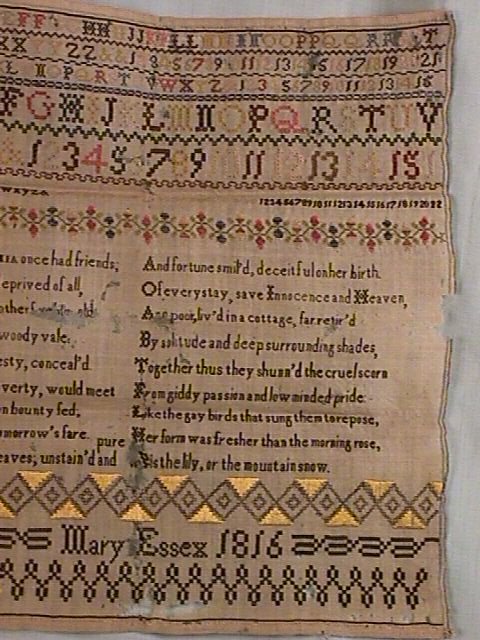 FF HH JJ LL II OO PP Q Q RR T
XX YY ZZ & 1 3 4 5 6 7 9 11 12 13 15 16 17 18 19 21
L M O P Q R T V W X Y Z 1 3 5 6 7 8 9 11 12 13 14 15
F G H I J L M N O P Q R S T U V
& 1 2 3 4 5 7 8 9 11 13 15
wxyz 1 2 3 4 5 6 7 8 9 10 11 12 13 14 15 16 17 18 19 20 22
once had friends; And fortune smil'd, deceitful on her birth.
eprived of all, Of every stay, save Innocence and Heaven,
other old And poor, liv'd in a cottage, far retir'd
woody vale; By solitude and deep surrounding shades,
esty, conceal'd. Together thus they shunn'd the cruel scorn
verty, would meet From giddy passion and low minded pride:
n bounty fed; Like the gay birds that sung them to repose,
morrow's fare. Her form was fresher than the morning rose,
eaves; unstain'd and pure As is the lily, or the mountain snow.
Mary Essex 1816